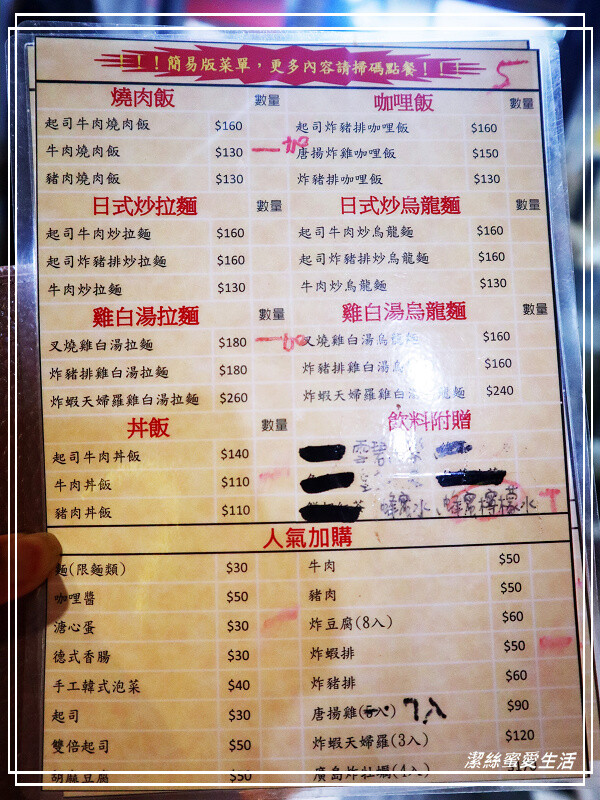 ！！！簡易版菜單，更多內容請掃碼點餐！！！ 5
燒肉飯 數量
起司牛肉燒肉飯 $160
牛肉燒肉飯 $130 一加
豬肉燒肉飯 $130
咖哩飯 數量
起司炸豬排咖哩飯 $160
唐揚炸雞咖哩飯 $150
炸豬排咖哩飯 $130
日式炒拉麵 數量
起司牛肉炒拉麵 $160
起司炸豬排炒拉麵 $160
牛肉炒拉麵 $130
日式炒烏龍麵 數量
起司牛肉炒烏龍麵 $160
起司炸豬排炒烏龍麵 $160
牛肉炒烏龍麵 $130
雞白湯拉麵 數量
叉燒雞白湯拉麵 $180 一加
炸豬排雞白湯拉麵 $180
炸蝦天婦羅雞白湯拉麵 $260
雞白湯烏龍麵 數量
叉燒雞白湯烏龍麵 $160
炸豬排雞白湯烏 $160
炸蝦天婦羅雞白湯烏龍麵 $240
丼飯 數量
起司牛肉丼飯 $140
牛肉丼飯 $110
豬肉丼飯 $110
飲料附贈
雪碧
蜂蜜水、蜂蜜檸檬水
人氣加購
麵(限麵類) $30
咖哩醬 $50
溏心蛋 $30
德式香腸 $30
手工韓式泡菜 $40
起司 $30
雙倍起司 $50
胡麻豆腐 $50
牛肉 $50
豬肉 $50
炸豆腐(8入) $60
炸蝦排 $50
炸豬排 $60
唐揚雞(6入) 7入 $90
炸蝦天婦羅(3入) $120
廣島炸牡蠣(4入)
潔絲蜜愛生活